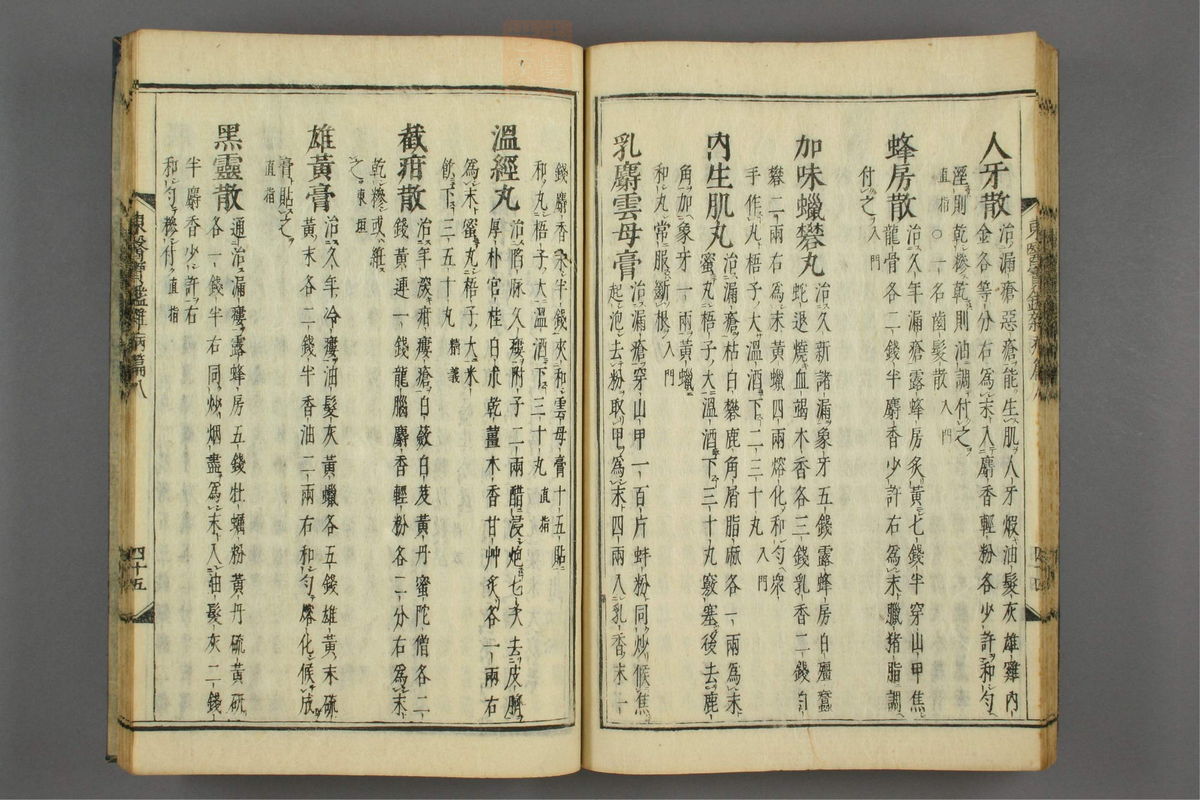 人牙散治漏瘡惡瘡能生肌人牙煆油髮灰雄雞內
金各等分右為末入麝香輕粉各少許和勻
溼則乾糝乾則油調付之
直指○一名齒髮散入門
蜂房散治久年漏瘡露蜂房炙黃七錢半穿山甲焦
龍骨各二錢半麝香少許右為末臘猪脂調
付之入門
加味蠟礬丸治久新諸漏象牙五錢露蜂房白殭蠶
蛇退燒血竭木香各三錢乳香二錢白
礬二兩右為末黃蠟四兩熔化和勻衆
手作丸梧子大溫酒下二三十丸入門
內生肌丸治漏瘡枯白礬鹿角屑脂麻各一兩為末
蜜丸梧子大溫酒下三十丸竅塞後去鹿
角加象牙一兩黃蠟
和丸常服斷根入門
乳麝雲母膏治漏瘡穿山甲一百片蚌粉同炒候焦
起泡去粉取甲為末四兩入乳香末一
錢麝香末半錢夾和雲母膏十五貼
和丸梧子大溫酒下三十丸直指
溫經丸治陷脉久瘻附子二兩醋浸炮七次去皮臍
厚朴官桂白朮乾薑木香甘艸炙各一兩右
為末蜜丸梧子大米
飮下三五十丸精義
截疳散治年深疳瘻瘡白斂白芨黃丹蜜陀僧各二
錢黃連一錢龍腦麝香輕粉各二分右為末
乾糝或紝
之東垣
雄黃膏治久年冷瘻油髮灰黃蠟各五錢雄黃末硫
黃末各二錢半香油二兩右和勻熔化候成
膏貼之
直指
黑靈散通治漏瘻露蜂房五錢牡蠣粉黃丹硫黃
各一錢半右同炒烟盡為末入油髮灰二錢
半麝香少許右
和勻糝付直指
東醫寶鑑雜病篇八
四十五